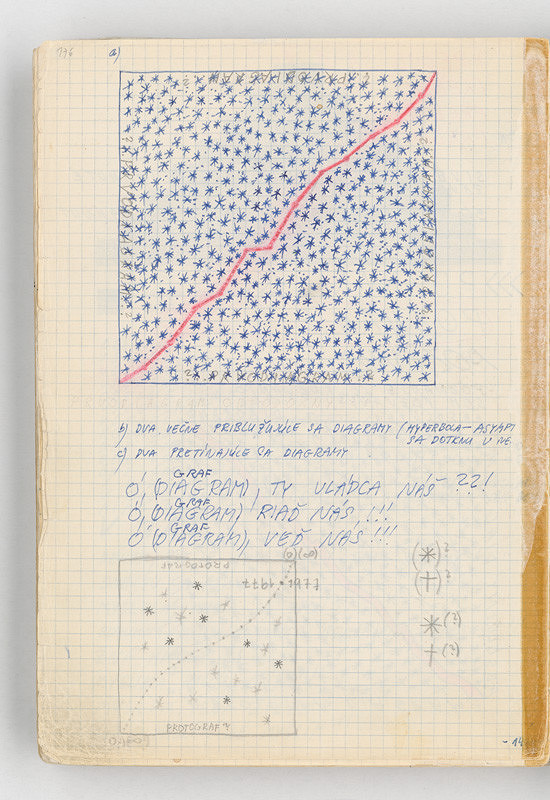 a)
b) DVA VEČNE PRIBLIŽUJÚCE SA DIAGRAMY (HYPERBOLA-ASYMPT
SA DOTKNÚ V NE.
c) DVA PRETÍNAJÚCE SA DIAGRAMY
GRAF
Ó, (DIAGRAM), TY VLÁDCA NÁŠ ??!
GRAF
Ó, (DIAGRAM) RIAĎ NÁS, !!!
GRAF
Ó (DIAGRAM), VEĎ NÁS !!!
(0)(∞)
PROTOGRAF
1977
(*)?
(†)?
*(?)
†(?)
PROTOGRAF ?
(0)(∞)
- 14